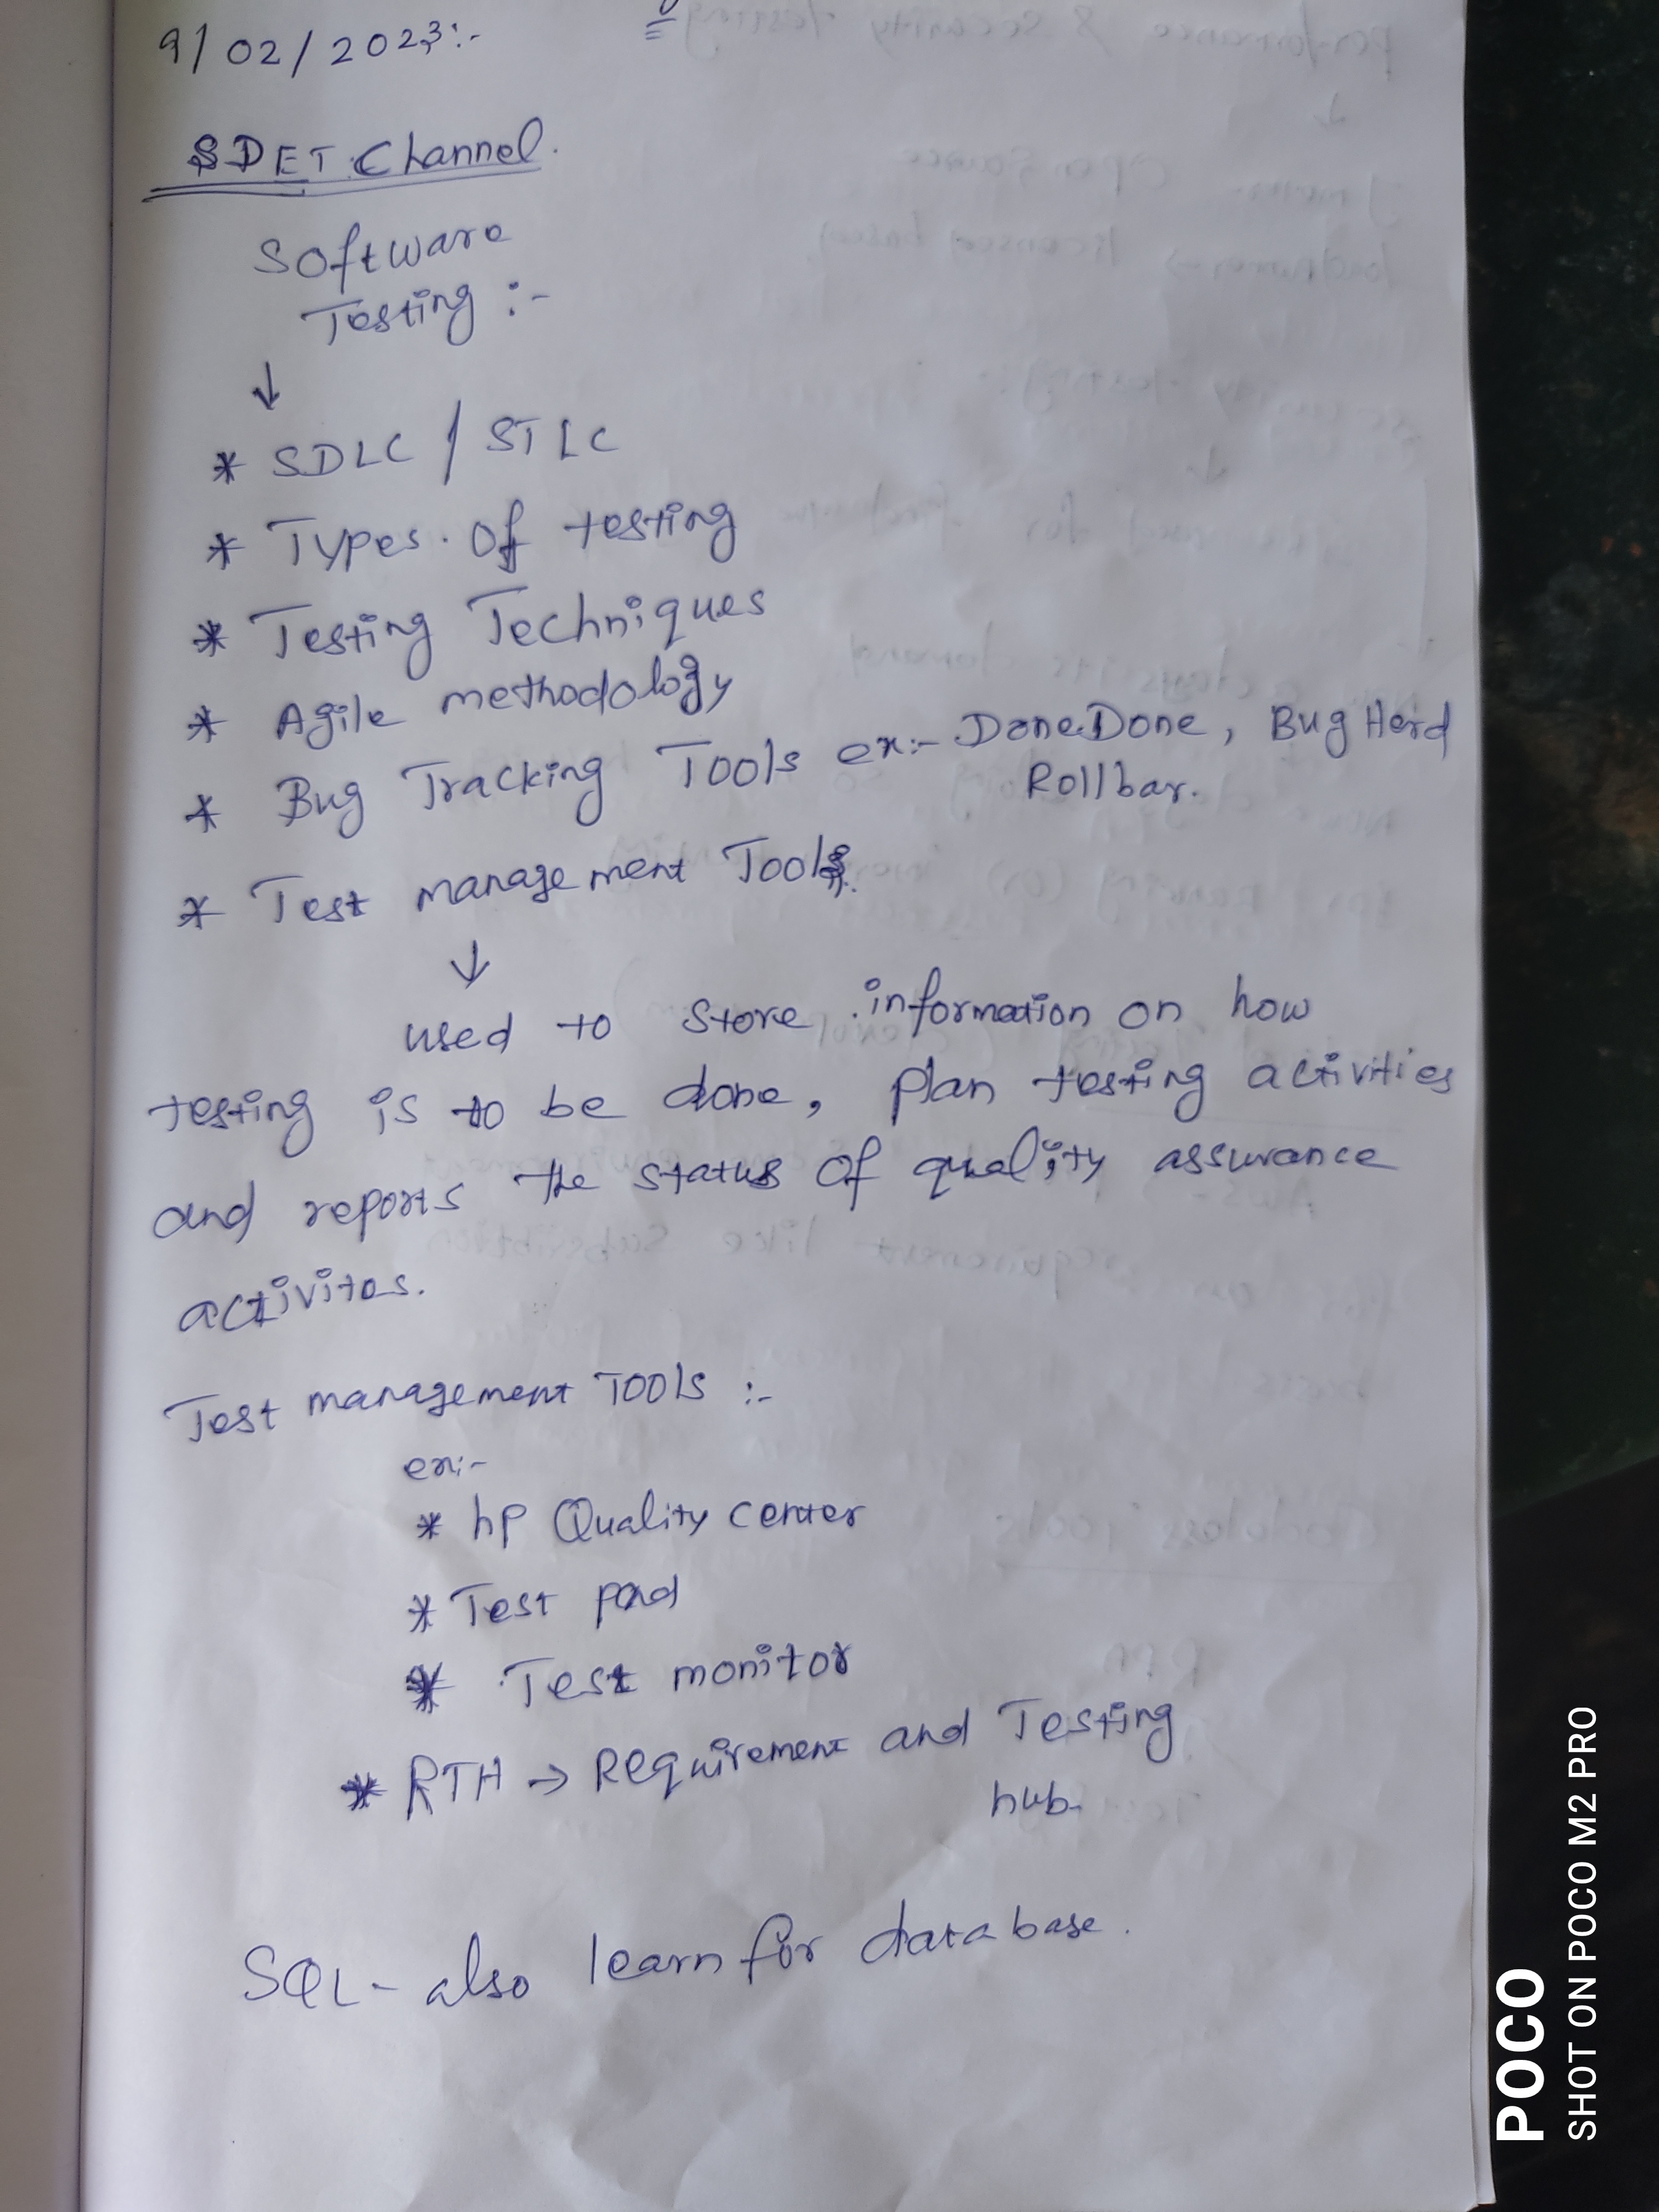 9/02/2023:-
SDET Channel.
Software
Testing :-
↓
* SDLC / STLC
* Types. Of testing
* Testing Techniques
* Agile methodology
* Bug Tracking Tools ex:- DoneDone, Bug Herd
Rollbar.
* Test management Tools.
↓
used to store information on how
testing is to be done, plan testing activities
and reports the status of quality assurance
activites.
Test management TOOls :-
ex:-
* hp Quality center
* Test pad
* Test monitor
* RTH → Requirement and Testing
hub.
SQL - also learn for database.
POCO
SHOT ON POCO M2 PRO